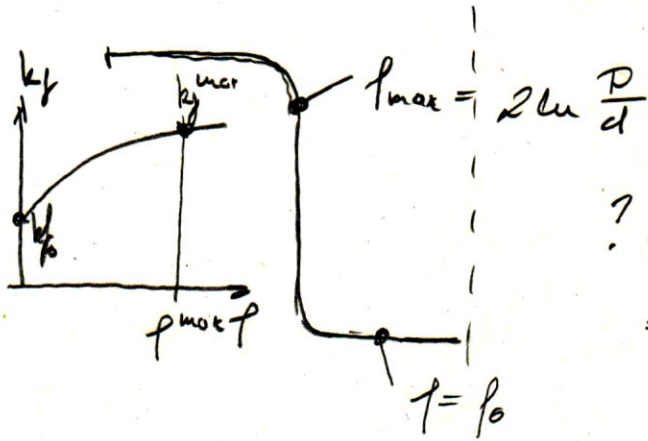 kf
kf max
kf₀
φ max φ
φmax = 2 ln D/d
?
φ = φ₀